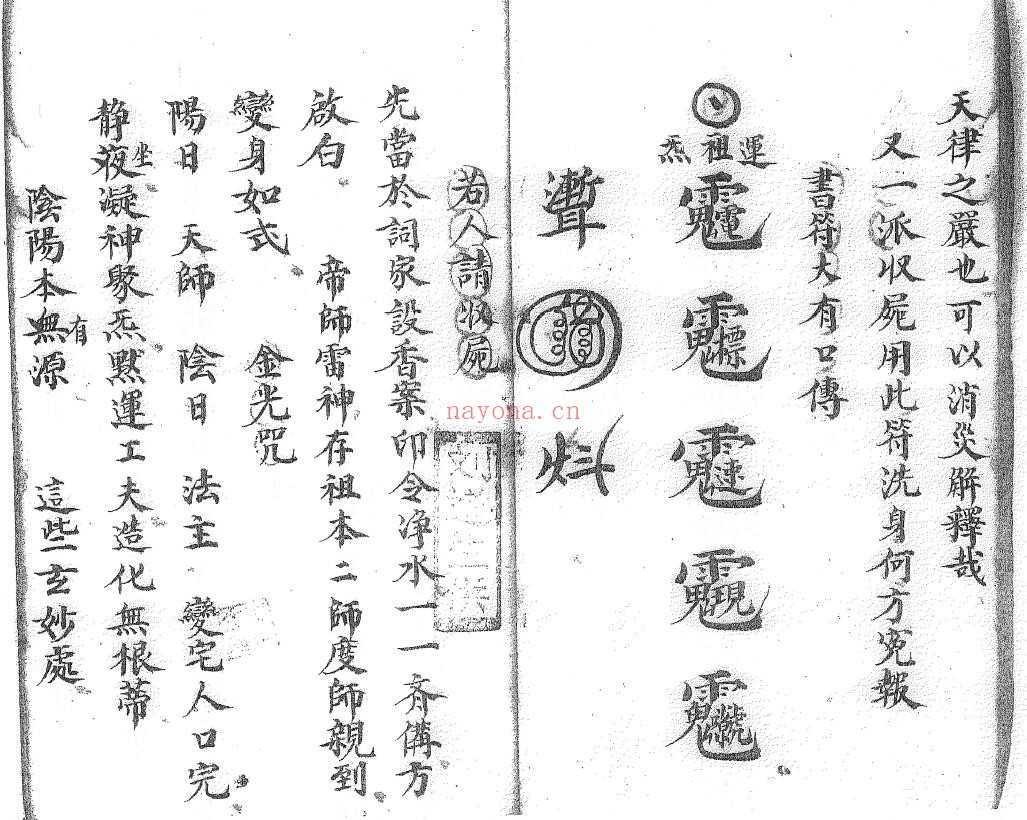 天律之嚴也可以消災解釋哉
又一派收屍用此符洗身何方冤報
書符大有口傳
運祖炁
若人請收屍
先當於詞家設香案印令净水一一齐俻方
啟白 帝師雷神存祖本二師度師親到
變身如式 金光咒
陽日 天師 陰日 法主 變宅人口完
静夜坐凝神聚炁黙運工夫造化無根蒂
陰陽本無有源 這些玄妙處
nayona.cn